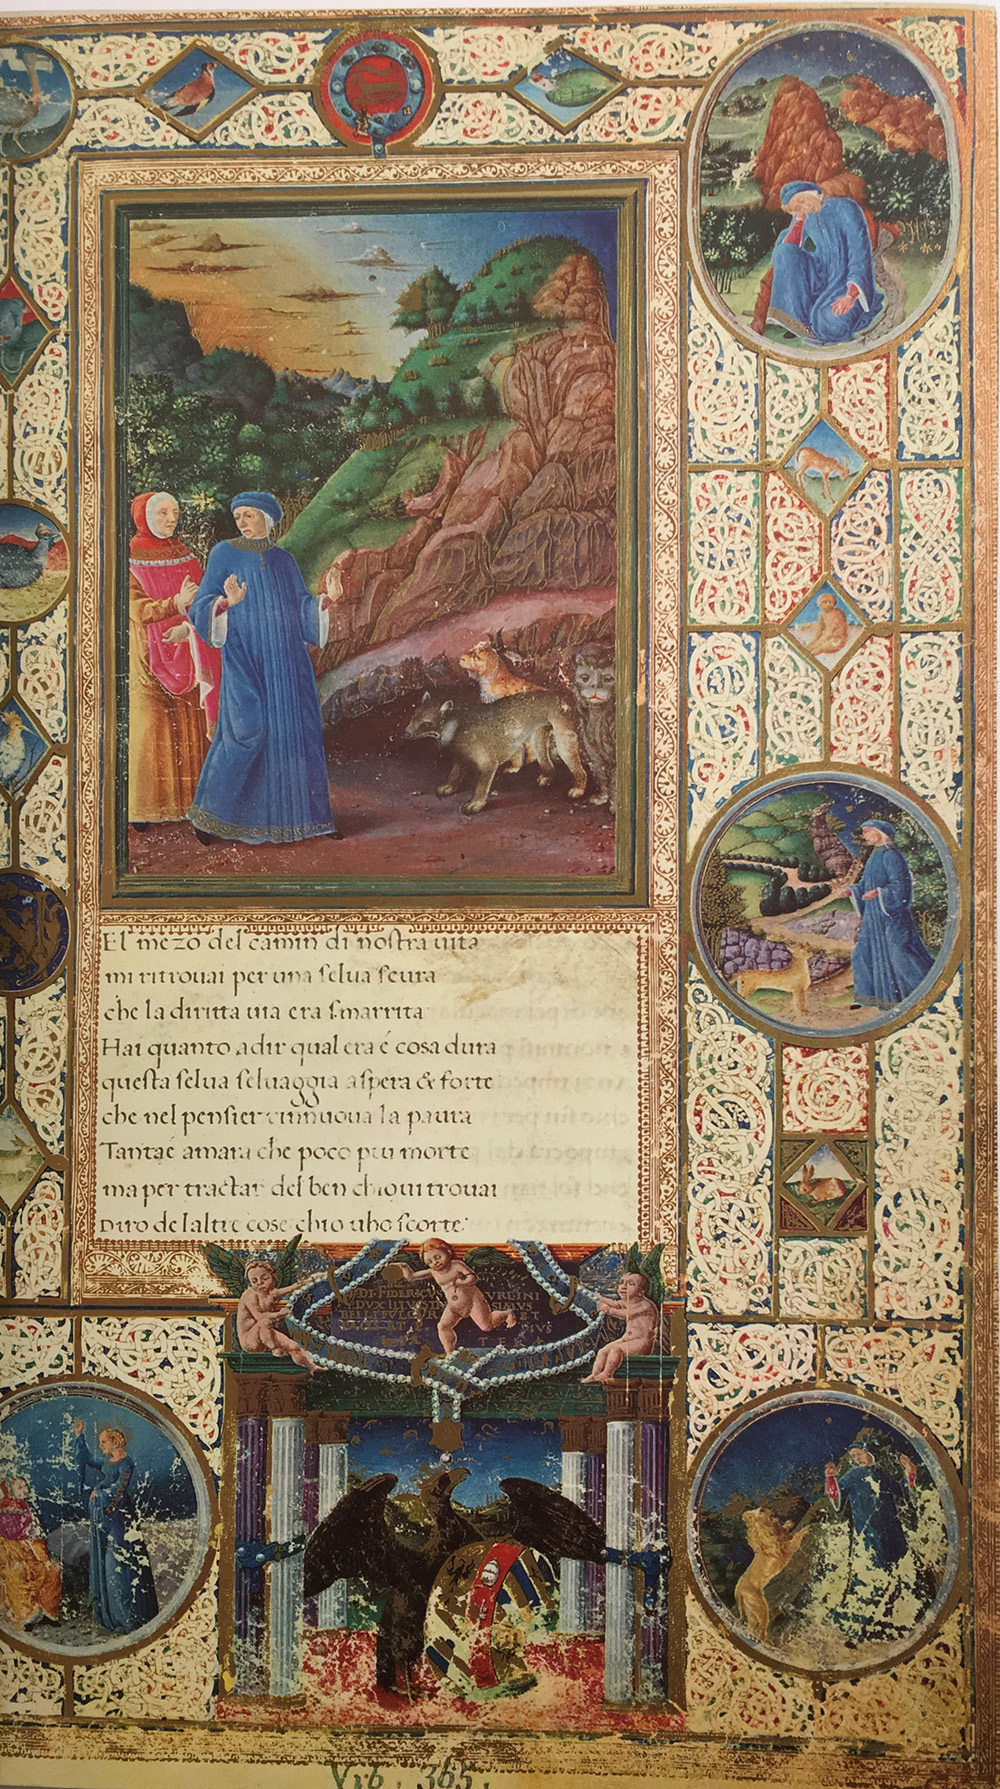 El mezo del camin di nostra uita
mi ritrouai per una selua scura
che la diritta uia era smarrita
Hai quanto adir qual era é cosa dura
questa selua seluaggia aspera & forte
che nel pensier rinnuoua la paura
Tantaé amara che poco piu morte
ma per tractar del ben chioui trouai
diro delaltre cose chio uho scorte
DI·FIDERICV VRBINI
DVX ILLVSTR SIMVS
BELLI FVLGVR ET
ET PIVS
Vrb. 365.